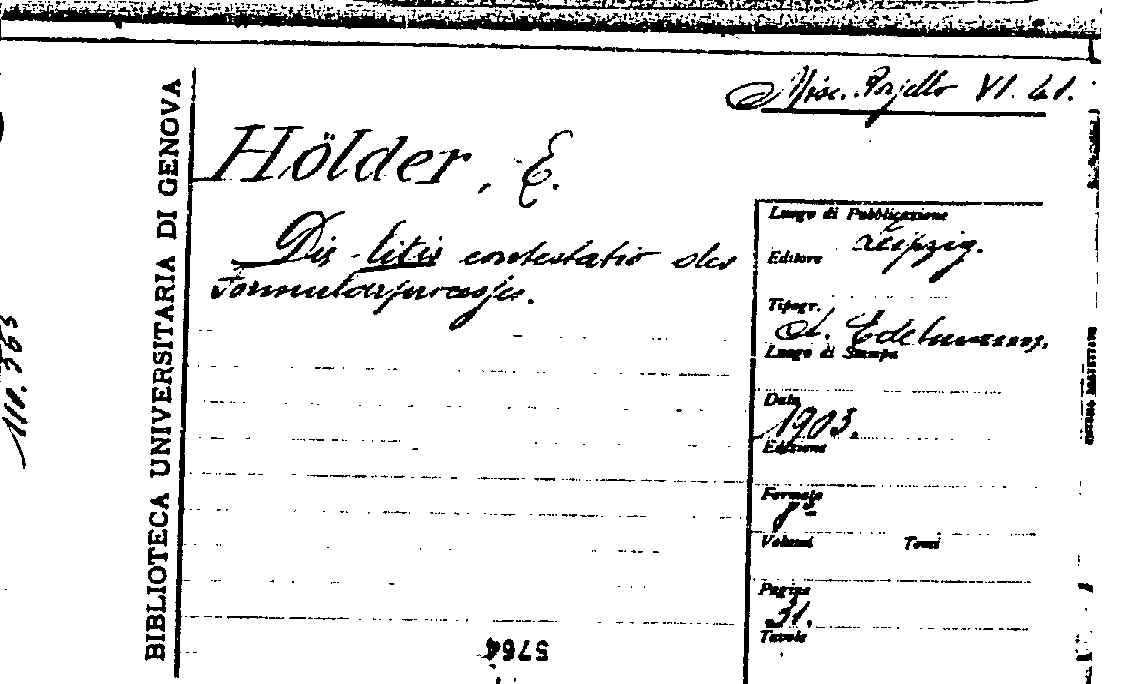 BIBLIOTECA UNIVERSITARIA DI GENOVA
Misc. VI. 41.
Hölder, E.
Die litis contestatio des
Formularprocesses.
Luogo di Pubblicazione
Leipzig.
Editore
Tipogr.
A. Edelmann,
Luogo di Stampa
Data
1903.
Edizione
Formato
8º
Volumi Tomi
Pagine
31.
Tavole
5764
110.363